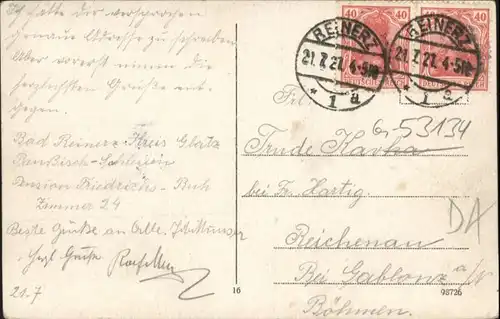 Ich hatte dir versprochen
genaue Adresse zu schreiben
Aber vorerst nimm die
herzlichsten Grüße ent-
gegen.
Bad Reinerz Kreis Glatz
Preußisch-Schlesien
Pension Friedrichs-Ruh
Zimmer 24
Beste Grüße an Alle.
Hzgl Grüße
21.7
40 40
40 40
DEUTSCHES REICH
REINERZ
21.7.21.4-5N
* 1 a
REINERZ
21.7.21.4-5N
* 1 a
Frl.
6-53134
Trude Kavka
bei Fr. Hartig.
DA
Reichenau
Bei Gablonz a/N
Böhmen.
16
98726